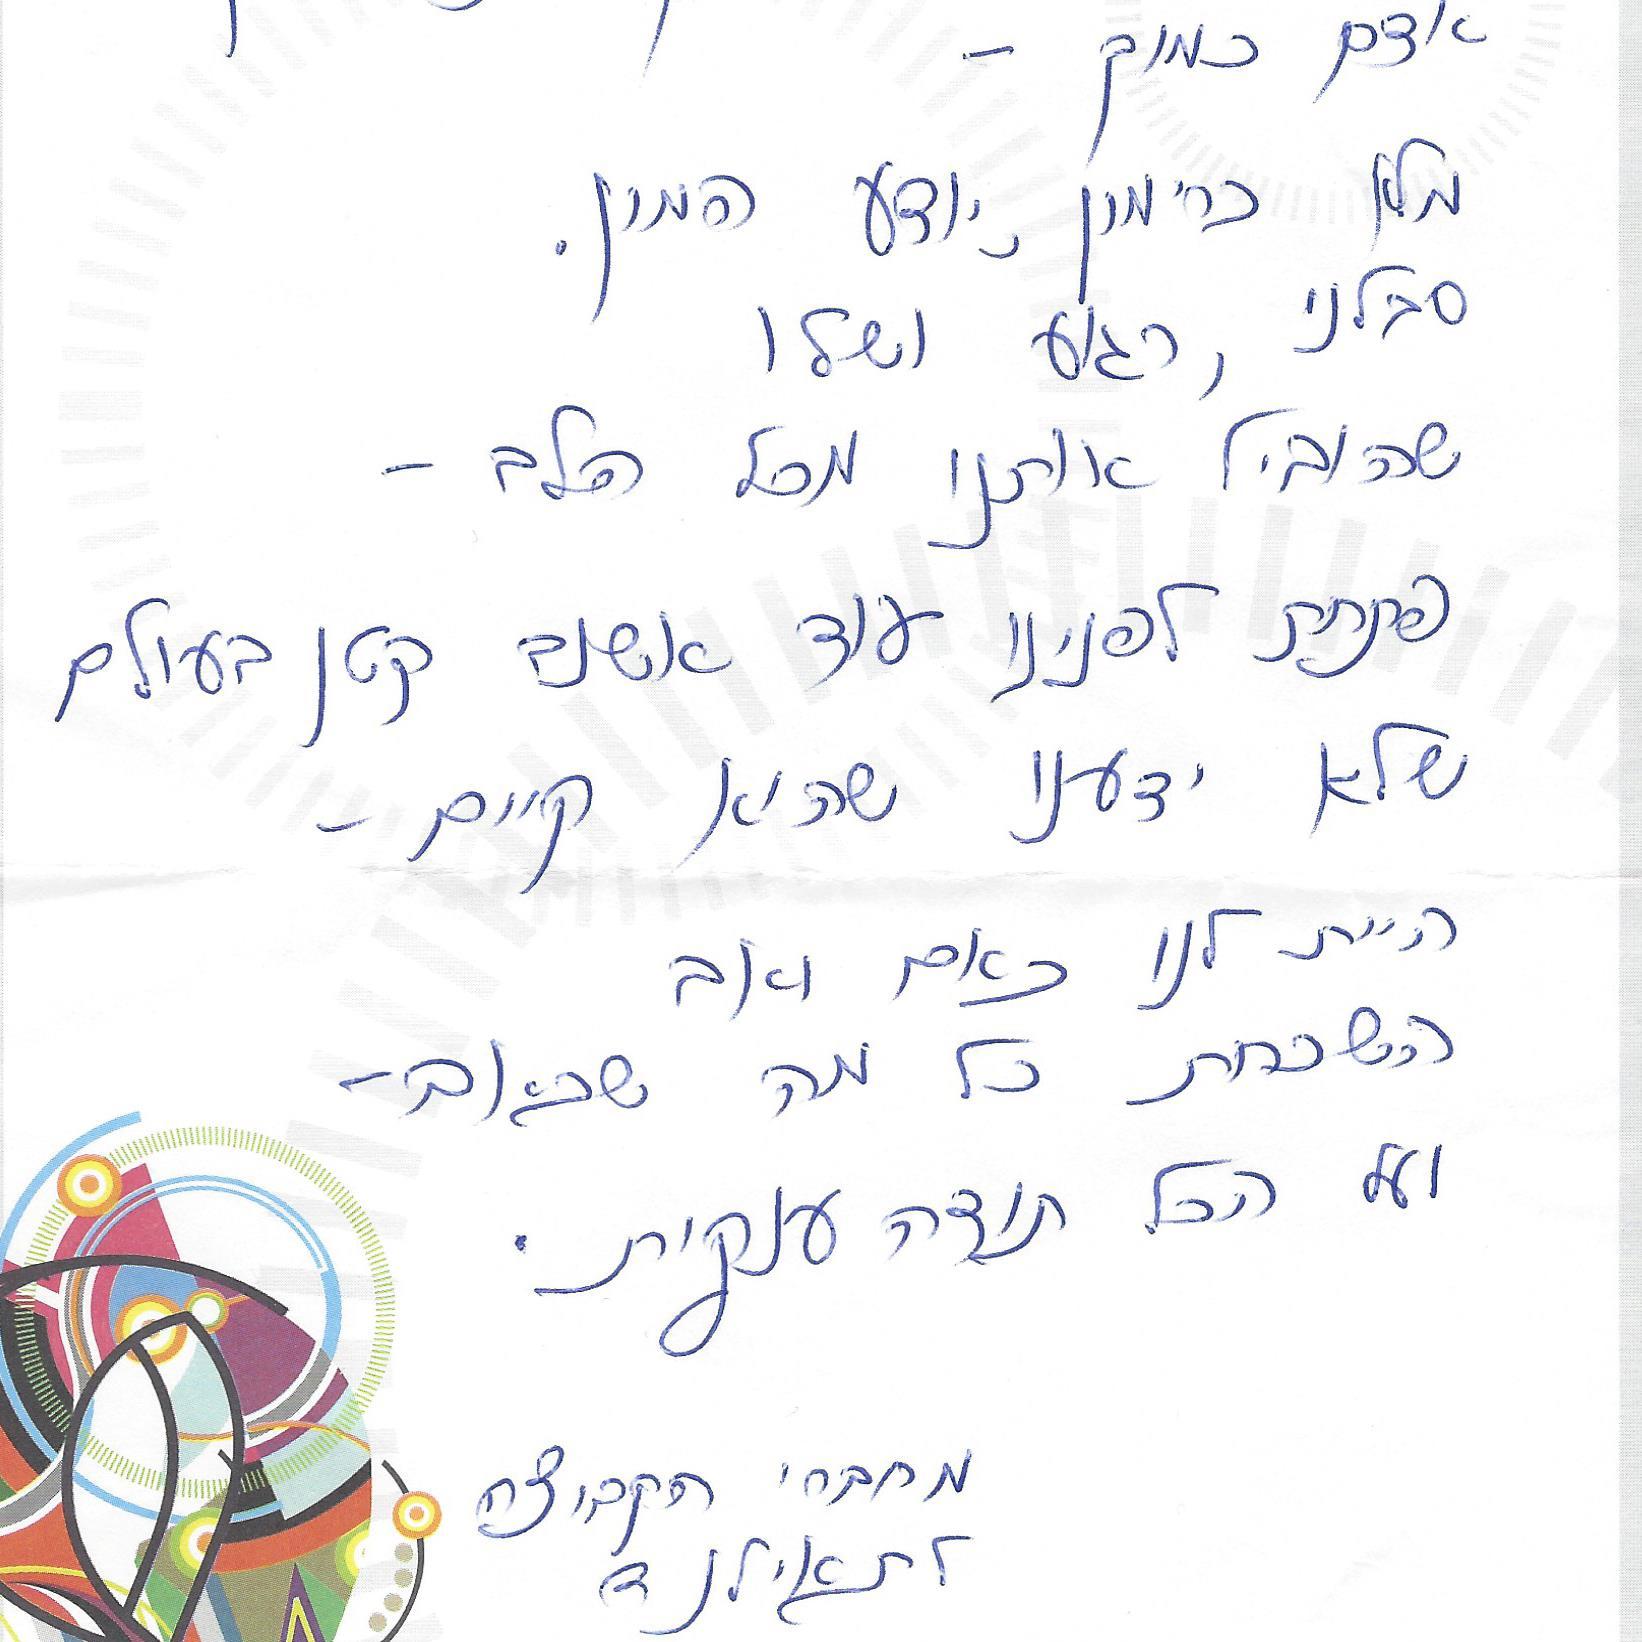 אדם כמוך -
מלא כרימון, יודע המון.
סבלני, רגוע ושלו
שהוביל אותנו מכל הלב -
פתחת לפנינו עוד אשנב קטן בעולם
שלא ידענו שהוא קיים -
היית לנו כאם ואב
השכחת כל מה שכאוב -
ועל הכל תודה ענקית.
מחברי הקבוצה
לתאילנד